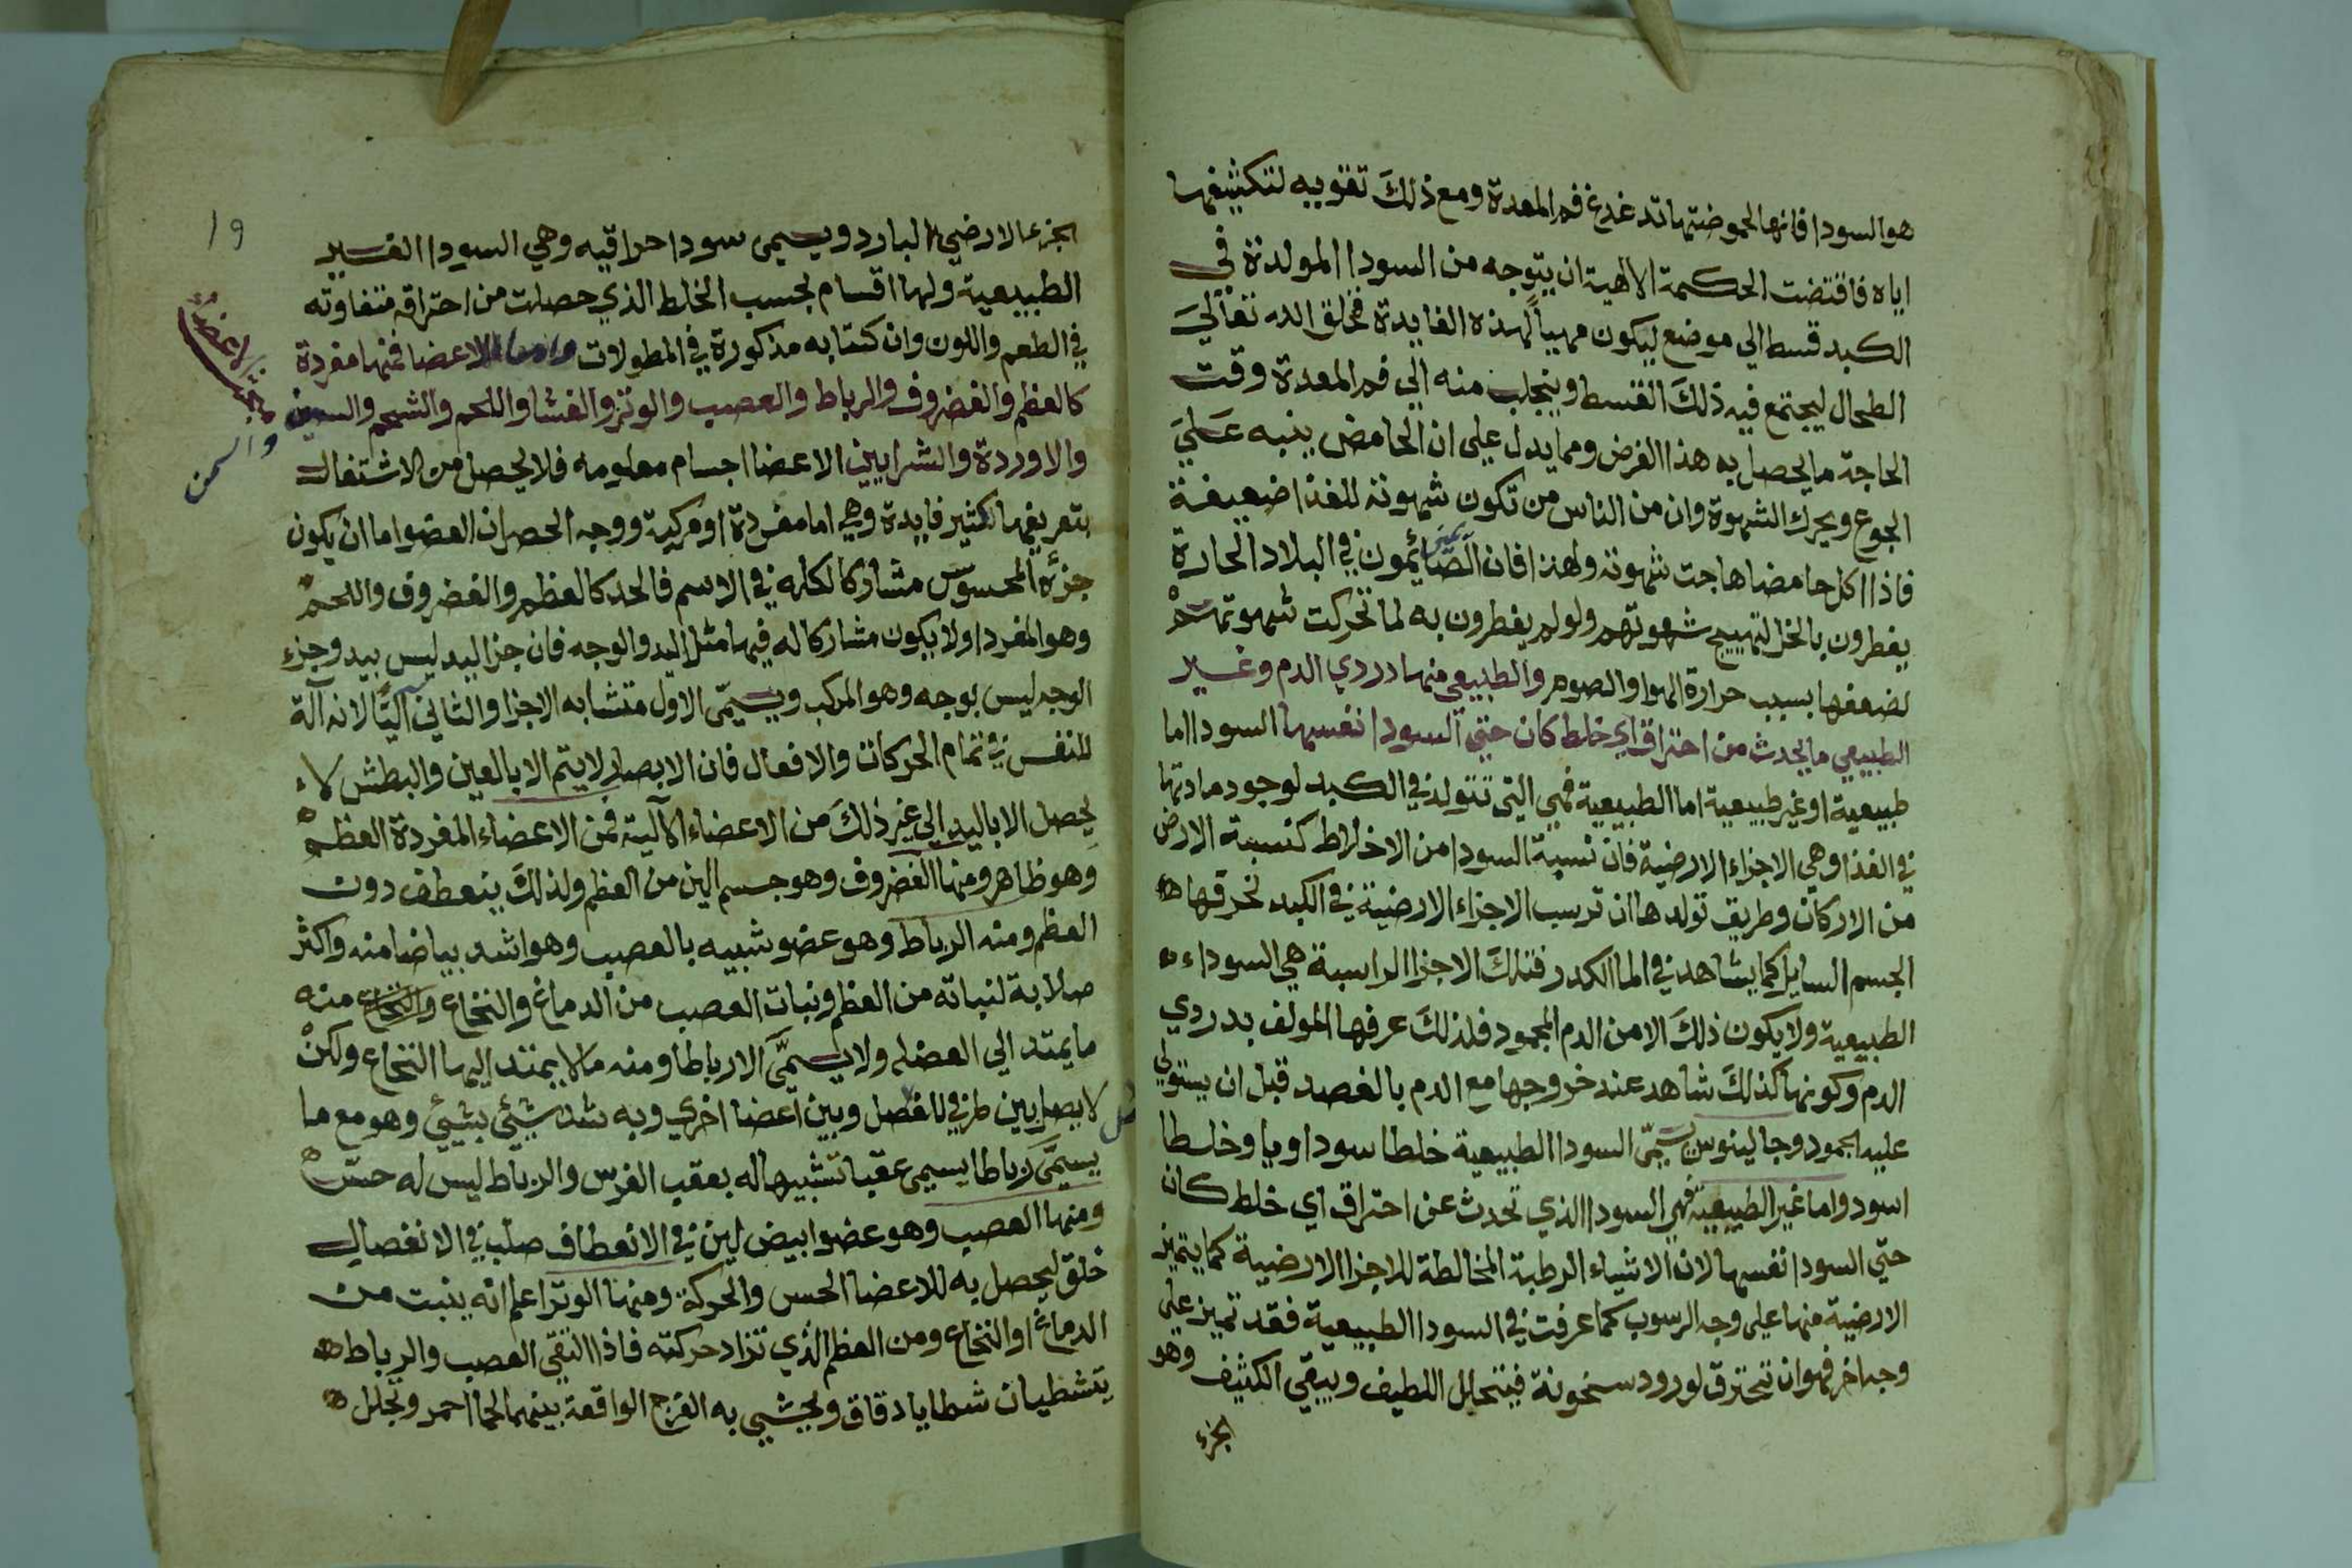 هو السودا فانها لحموضتها تدغدغ فم المعدة ومع ذلك تقويه لتكثيفها
اياه فاقتضت الحكمة الالهية ان يتوجه من السودا المولدة في
الكبد قسط الي موضع ليكون مهيأ لهذه الفايدة فخلق الله تعالي
الطحال ليجتمع فيه ذلك القسط وينجلب منه الي فم المعدة وقت
الحاجة ما يحصل به هذا الغرض ومما يدل علي ان الحامض ينبه علي
الجوع ويحرك الشهوة وان من الناس من تكون شهوته للغذا ضعيفة
فاذا اكل حامضا هاجت شهوته ولهذا فان الصائمون في البلاد الحارة
يفطرون بالخل لتهييج شهوتهم ولو لم يفطرون به لما تحركت شهوتهم
لضعفها بسبب حرارة الهوا والصوم والطبيعي منها دردي الدم وغير
الطبيعي ما يحدث من احتراق اي خلط كان حتي السودا نفسها السودا اما
طبيعية او غير طبيعية اما الطبيعية فهي التي تتولد في الكبد لوجود مادتها
في الغذا وهي الاجزاء الارضية فان نسبة السودا من الاخلاط كنسبة الارض
من الاركان وطريق تولدها ان ترسب الاجزاء الارضية في الكبد لخرقها
الجسم السايل كما يشاهد في الما الكدر فتلك الاجزا الراسبة هي السوداء
الطبيعية ولا يكون ذلك الا من الدم المحمود فلذلك عرفها المولف بدردي
الدم وكونها كذلك شاهد عند خروجها مع الدم بالفصد قبل ان يستولي
عليه الجمود وجالينوس يسمي السودا الطبيعية خلطا سوداويا وخلطا
اسود واما غير الطبيعية فهي السودا الذي تحدث عن احتراق اي خلط كان
حتي السودا نفسها لان الاشياء الرطبة المخالطة للاجزا الارضية كما يتميز
الارضية منها علي وجه الرسوب كما عرفت في السودا الطبيعية فقد تميز علي
وجه اخر فهو ان تحترق لورود سخونة فيتحلل اللطيف ويبقي الكثيف وهو
الجزء
19
الجزء الارضي البارد ويسمى سودا حراقيه وهي السودا الغير
الطبيعية ولها اقسام بحسب الخلط الذي حصلت من احتراقه متفاوته
في الطعم واللون وان كتابه مذكورة في المطولات واما الاعضا فمنها مفردة
كالعظم والغضروف والرباط والعصب والوتر والغشا واللحم والشحم والسمين
والسمن
والاوردة والشرايين الاعضا اجسام معلومه فلا يحصل من الاشتغال
بتعريفها كثير فايدة وهي اما مفردة او مركبة ووجه الحصر ان العضو اما ان يكون
جزؤه المحسوس مشاركا لكله في الاسم فالحد كالعظم والغضروف واللحم
وهو المفرد او لا يكون مشاركا له فيها مثل اليد والوجه فان جزا اليد ليس بيد وجزء
الوجه ليس بوجه وهو المركب ويسمى الاول متشابه الاجزا والثاني آليا لانه آلة
للنفس في تمام الحركات والافعال فان الابصار لا يتم الا بالعين والبطش لا
يحصل الا باليد الي غير ذلك من الاعضاء الآلية فمن الاعضاء المفردة العظم
وهو ظاهر ومنها الغضروف وهو جسم الين من العظم ولذلك ينعطف دون
العظم ومنه الرباط وهو عضو شبيه بالعصب وهو اشد بياضا منه واكثر
صلابة لنباته من العظم ونبات العصب من الدماغ والنخاع والنخاع منه
ما يمتد الي العضله ولا يسمى الا رباطا ومنه ما لا يمتد اليها النخاع ولكن
لا يصل بين طرفي المفصل وبين اعضا اخري وبه شد شيئ بشيئ وهو مع ما
يسمى رباطا يسمى عقبا تشبيها له بعقب الفرس والرباط ليس له حس
ومنها العصب وهو عضو ابيض لين في الانعطاف صلب في الانفصال
خلق ليحصل به للاعضا الحس والحركة ومنها الوتر اعلم انه ينبت من
الدماغ او النخاع ومن العظم الذي تراد حركته فاذا التقي العصب والرباط
يتشظيان شظايا دقاق ويحشي به الفرج الواقعة بينهما لحما احمر ويجلل